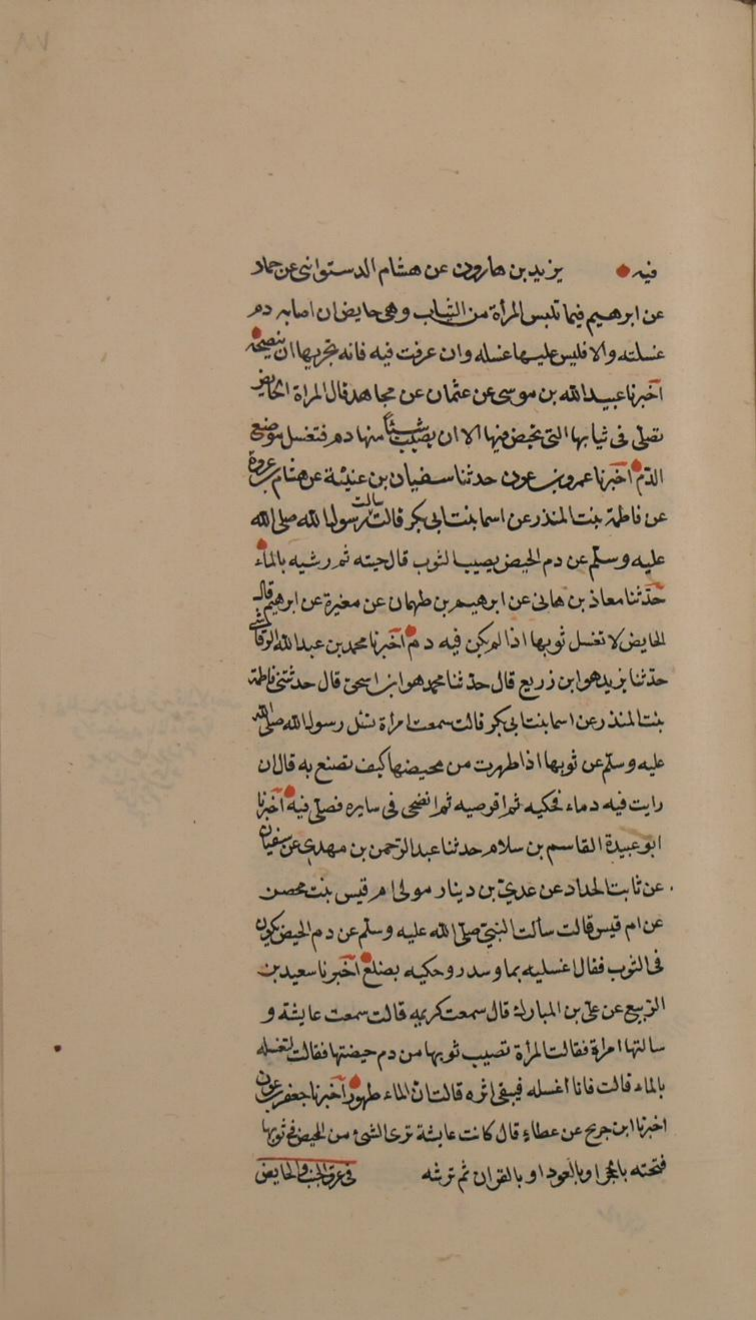 فيه يزيد بن هارون عن هشام الدستوانى عن حماد
عن ابرهيم فيما تلبس المرأة من الثياب وهى حايض ان اصابه دم
غسلته والا فليس عليها غسله وان عرقت فيه فانه يجزيها ان ينضحه
اخبرنا عبيد الله بن موسى عن عثمان عن مجاهد قال المراة الحايض
تصلى فى ثيابها التى تحيض فيها الا ان يصيب شيئاً منها دم فتغسل موضع
الدّم اخبرنا عمرو بن عون حدثنا سفيان بن عيينة عن هشام بن عروة
عن فاطمة بنت المنذر عن اسما بنت ابى بكر قالت سالت رسول الله صلى الله
عليه وسلّم عن دم الحيض يصيب الثوب قال حتيه ثم رشيه بالماء
حدّثنا معاذ بن هانى عن ابرهيم بن طهمان عن مغيرة عن ابرهيم قال
الحايض لا تغسل ثوبها اذا لم يكن فيه دم اخبرنا محمد بن عبد الله الرقاشى
حدّثنا يزيد هو ابن زريع قال حدّثنا محمد هو ابن اسحق قال حدثتنى فاطمة
بنت المنذر عن اسما بنت ابى بكر قالت سمعت امراة تسئل رسول الله صلى الله
عليه وسلّم عن ثوبها اذا طهرت من محيضها كيف تصنع به قال ان
رايت فيه دماء فحكيه ثم اقرصيه ثم انضحى فى سايره فصلى فيه اخبرنا
ابو عبيدة القاسم بن سلام حدثنا عبد الرّحمن بن مهدى عن سفيان
عن ثابت الحداد عن عدىّ بن دينار مولى ام قيس بنت محصن
عن ام قيس قالت سألت النبىّ صلى الله عليه وسلّم عن دم الحيض يكون
فى الثوب فقال اغسليه بما وسدر وحكيه بضلع اخبرنا سعيد بن
الرّبيع عن علىّ بن المبارك قال سمعت كريمه قالت سمعت عايشة و
سالتها امراة فقالت المرأة تصيب ثوبها من دم حيضتها فقالت لتغسله
بالماء قالت فانا اغسله فيبقى اثره قالت ان الماء طهور اخبرنا جعفر بن عون
اخبرنا ابن جريج عن عطاء قال كانت عايشة ترى الشئ من المحيض فى ثوبها
فتحته بالحجر او بالعود او بالقرن ثم ترشه فى عرق الجنب والحايض